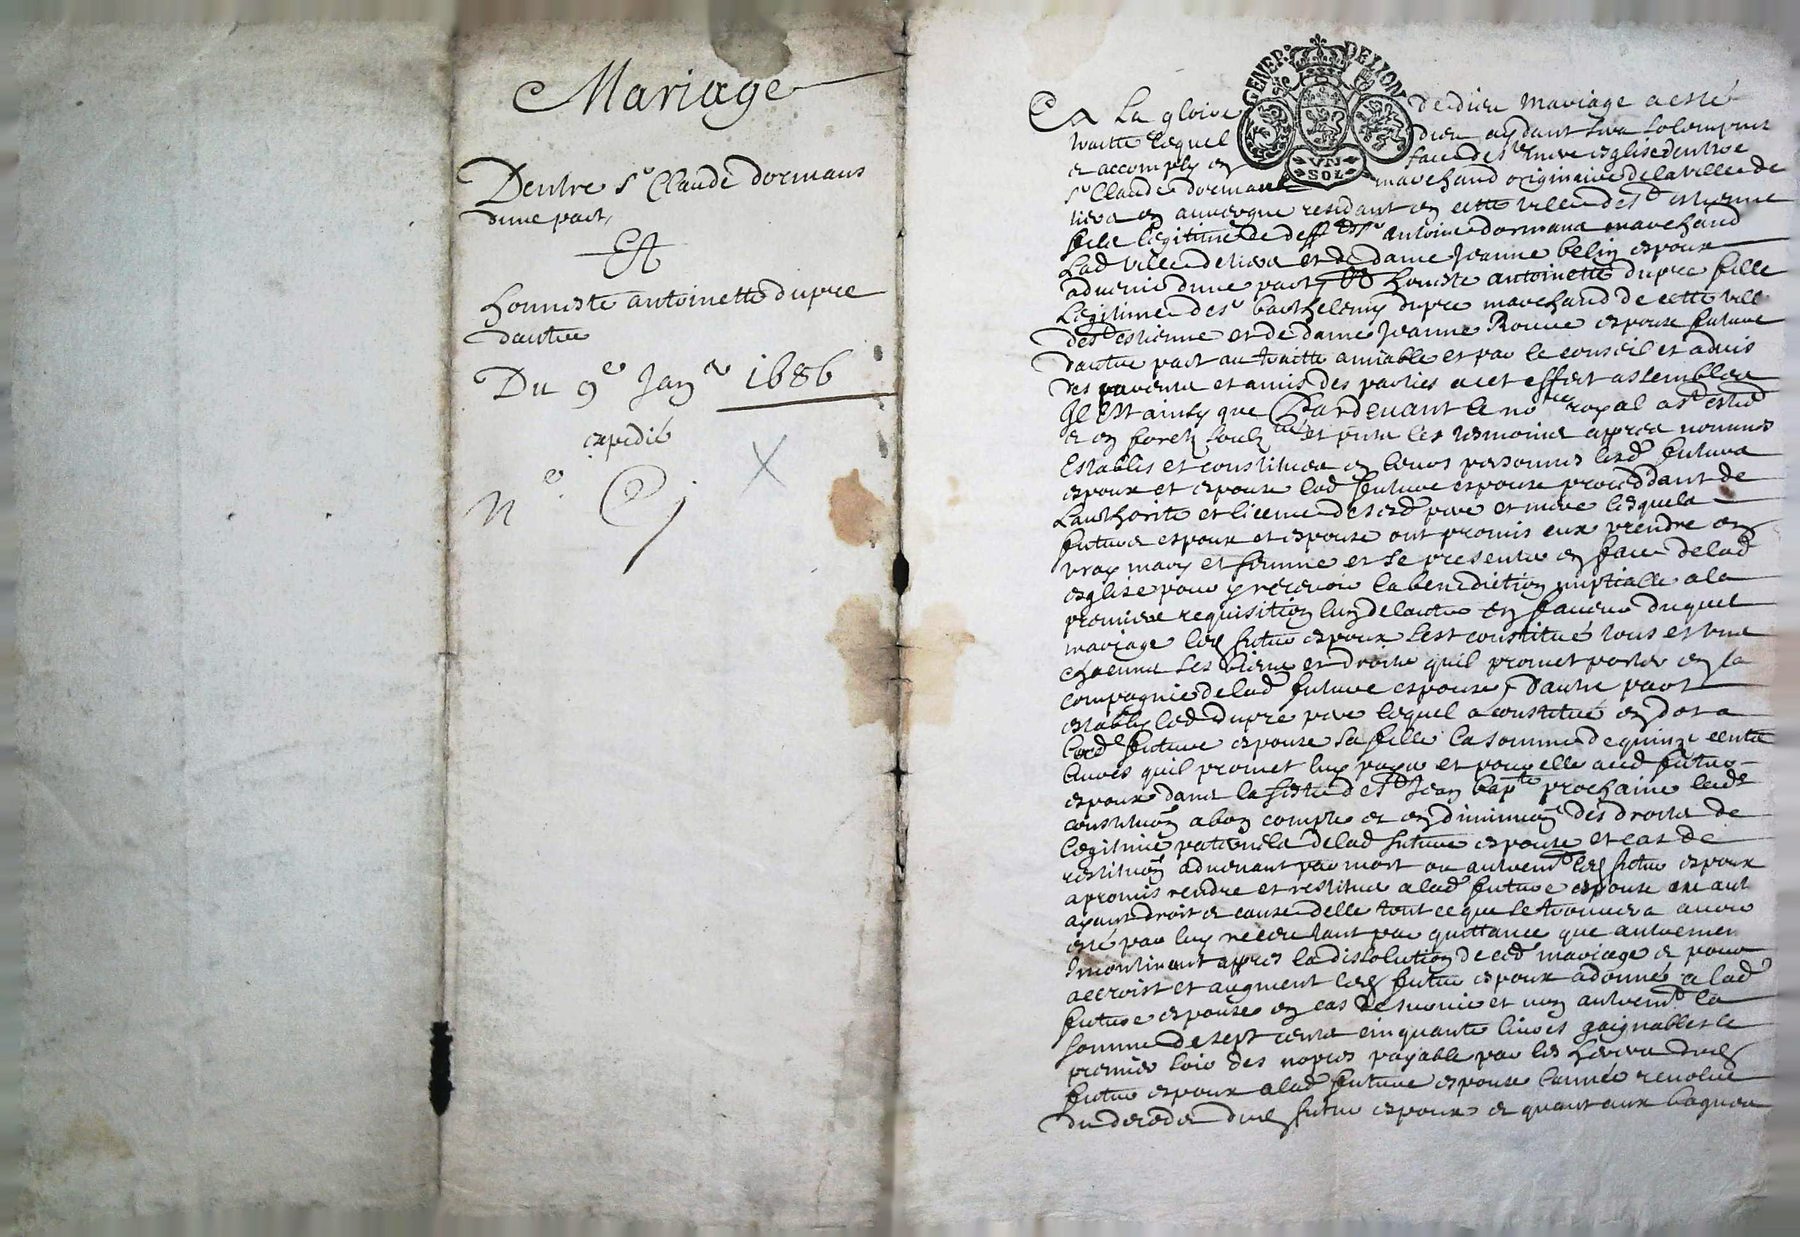 Mariage
Dentre Sr Claude dormans
dune part,
Et
honneste antoinette dupre
dautre
Du 9e Janer 1686
expedié
Ne
GENER. DE LYON
UN
SOL
En La gloire de dieu mariage a esté
traitté lequel dieu aydant sera solempnit
et accomply en face de ste mere esglise dentre
Sr Claude dormans marchand originaire de la ville de
en auvergne residant en cette ville de St estienne
filz legitime de deff Sr antoine dormans marchand
Lad ville de et de dame Jeanne belin espoux
advenir dune part, Et honeste antoinette dupre fille
Legitime de Sr barthelemy dupre marchand de cette ville
de St estienne et de dame Jeanne espouse future
dautre part au traitté amiable et par le conseil et advis
des parens et amis des parties a cet effect assemblez
Il est ainsy que Pardevant le nore royal a St estien
et en forestz soubz né et presens les tesmoins appres nommes
Establis et constitues en leurs personnes lesd futurs
espoux et espouse lad future espouse proceddant de
Lauthorité et licence de sesd pere et mere lesquels
futurs espoux et espouse ont promis eux prendre en
vray mary et femme et se presenter en face de lad
esglise pour y recevoir la benediction nuptialle a la
premiere requisition lun de lautre En faveur duquel
mariage led futur espoux sest constitué tous et un
chacuns ses biens et droits quil promet porter en la
compagnie de lad future espouse, dautre part
estably led dupre pere lequel a constitué en dot a
lad future espouse sa fille la somme de quinze cents
livres quil promet luy payer et pour elle aud futur
espoux dans la feste de St Jean bapte prochaine lade
constituon a bon compte et en diminuon des droits de
legitime paternels de lad future espouse et cas de
restituon advenant par mort ou autremt led futur espoux
a promis rendre et restituer a lad future espouse ou aut
ayant droit et cause delle tout ce que se trouvera avoir
esté par luy receu tant par quittance que autremen
Incontinant appres la dissolution de ced mariage et pour
accroist et augment led futur espoux a donné a lad
future espouse en cas de survie et non autremt la
somme de sept cents cinquante livres gaignables le
premier soir des nopces payable par les heirs dud
futur espoux a lad future espouse lannée revolue
du deceds dud futur espoux et quant aux bagues